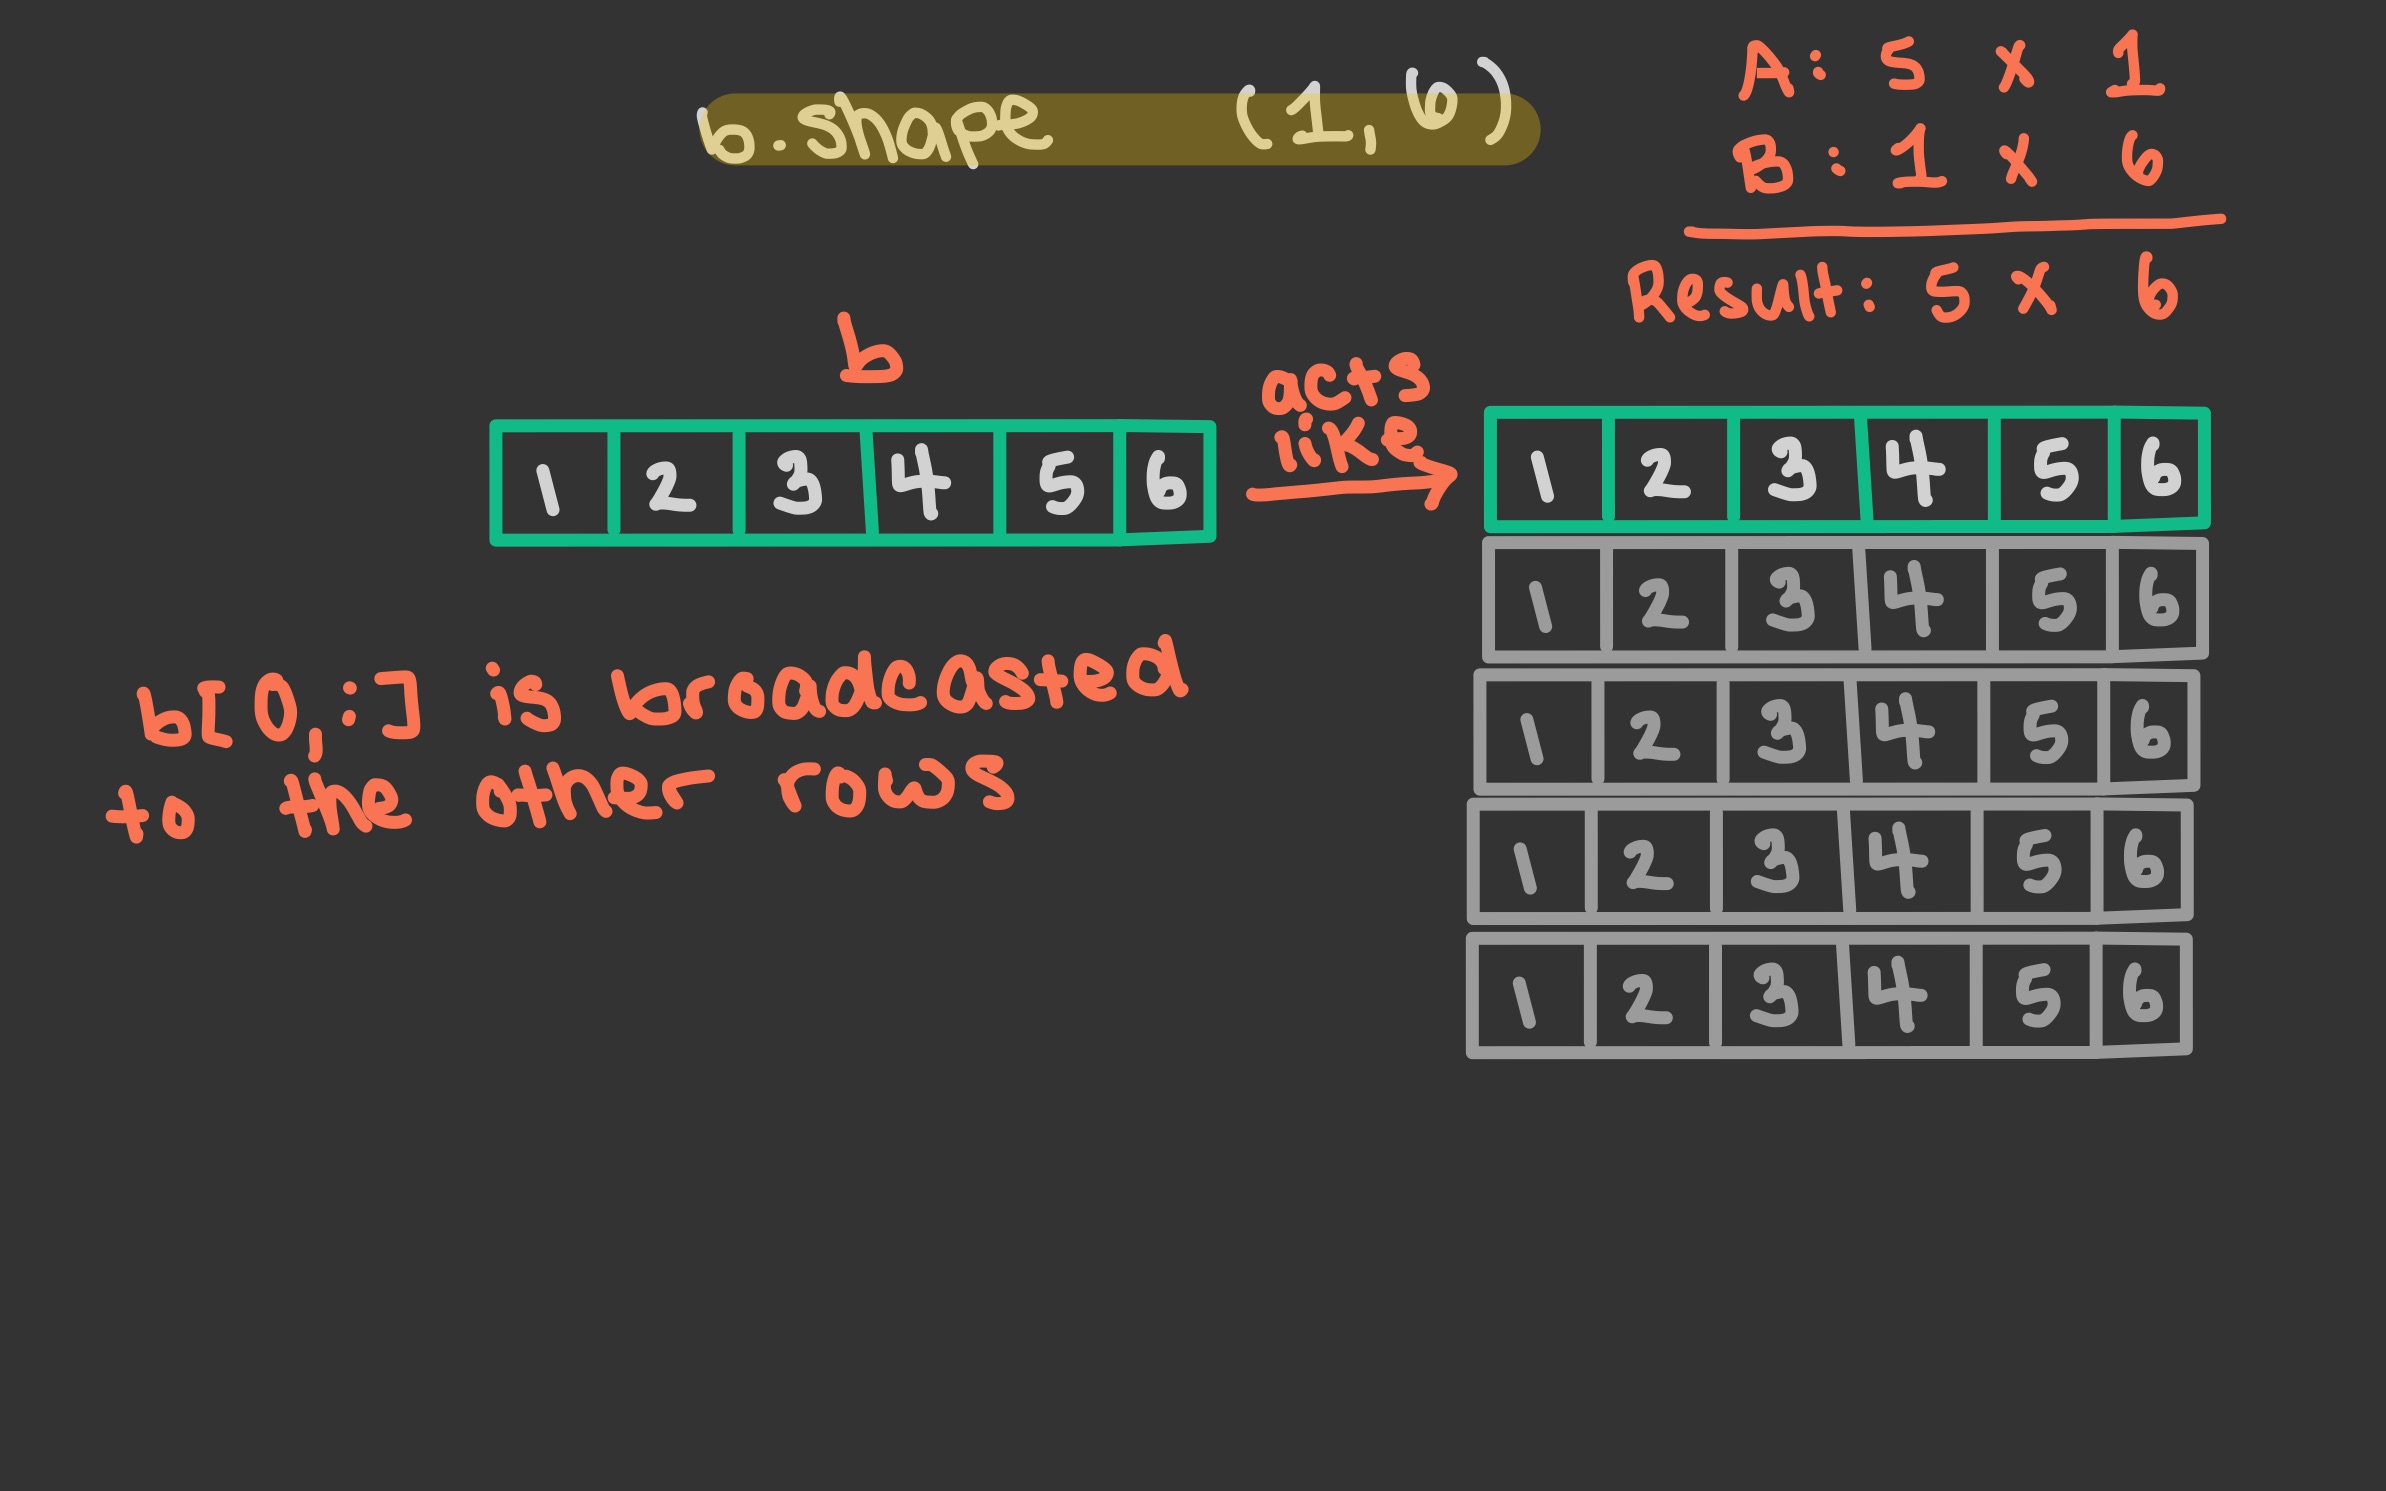 b.shape (1,6)
A: 5 x 1
B: 1 x 6
Result: 5 x 6
b
1 2 3 4 5 6
acts
like
1 2 3 4 5 6
1 2 3 4 5 6
1 2 3 4 5 6
1 2 3 4 5 6
1 2 3 4 5 6
b[0,:] is broadcasted
to the other rows